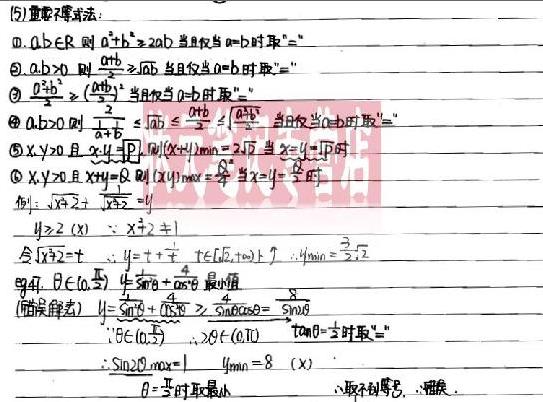 (5) 重要不等式法:
①. a.b∈R 则 a²+b²≥2ab 当且仅当a=b时取"="
②. a.b>0 则 (a+b)/2 ≥ √ab 当且仅当a=b时取"="
③ (a²+b²)/2 ≥ ((a+b)/2)² 当且仅当a=b时取"="
④ a.b>0 则 2/(1/a+1/b) ≤ √ab ≤ (a+b)/2 ≤ √((a²+b²)/2) 当且仅当a=b时取"="
⑤ x.y>0 且 x·y=P, 则(x+y)min=2√P 当x=y=√P时
⑥ x.y>0 且 x+y=Q 则(xy)max=Q²/4 当x=y=Q/2时
例: √(x²+2) + 1/√(x²+2) = y
y≥2 (x) ∵ x²+2≠1
令√(x²+2)=t ∴ y=t+1/t t∈[√2,+∞)上↑ ∴ymin=3/2√2
θ∈(0,π/2) y=1/sin²θ+4/cos²θ 最小值
(错误解法) y=1/sin²θ+4/cos²θ ≥ 4/sinθcosθ = 8/sin2θ
∵θ∈(0,π/2) ∴2θ∈(0,π) tanθ=1/2时取"="
∴sin2θ max=1 ymin=8 (x)
θ= 时取最小 ∴取不到等号, ∴错误.